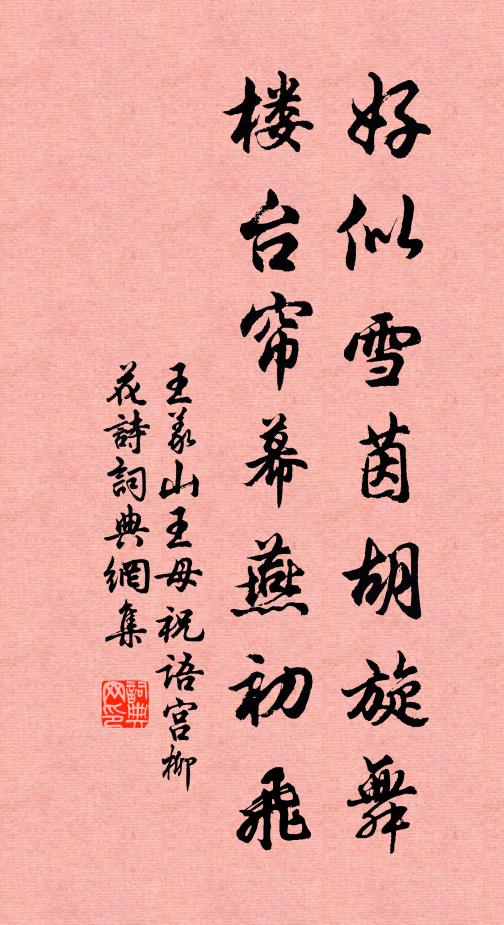 好似雪茵胡旋舞
楼台帘幕燕初飛
王義山王母祝语宫柳
花詩詞典網集
詞典
网印